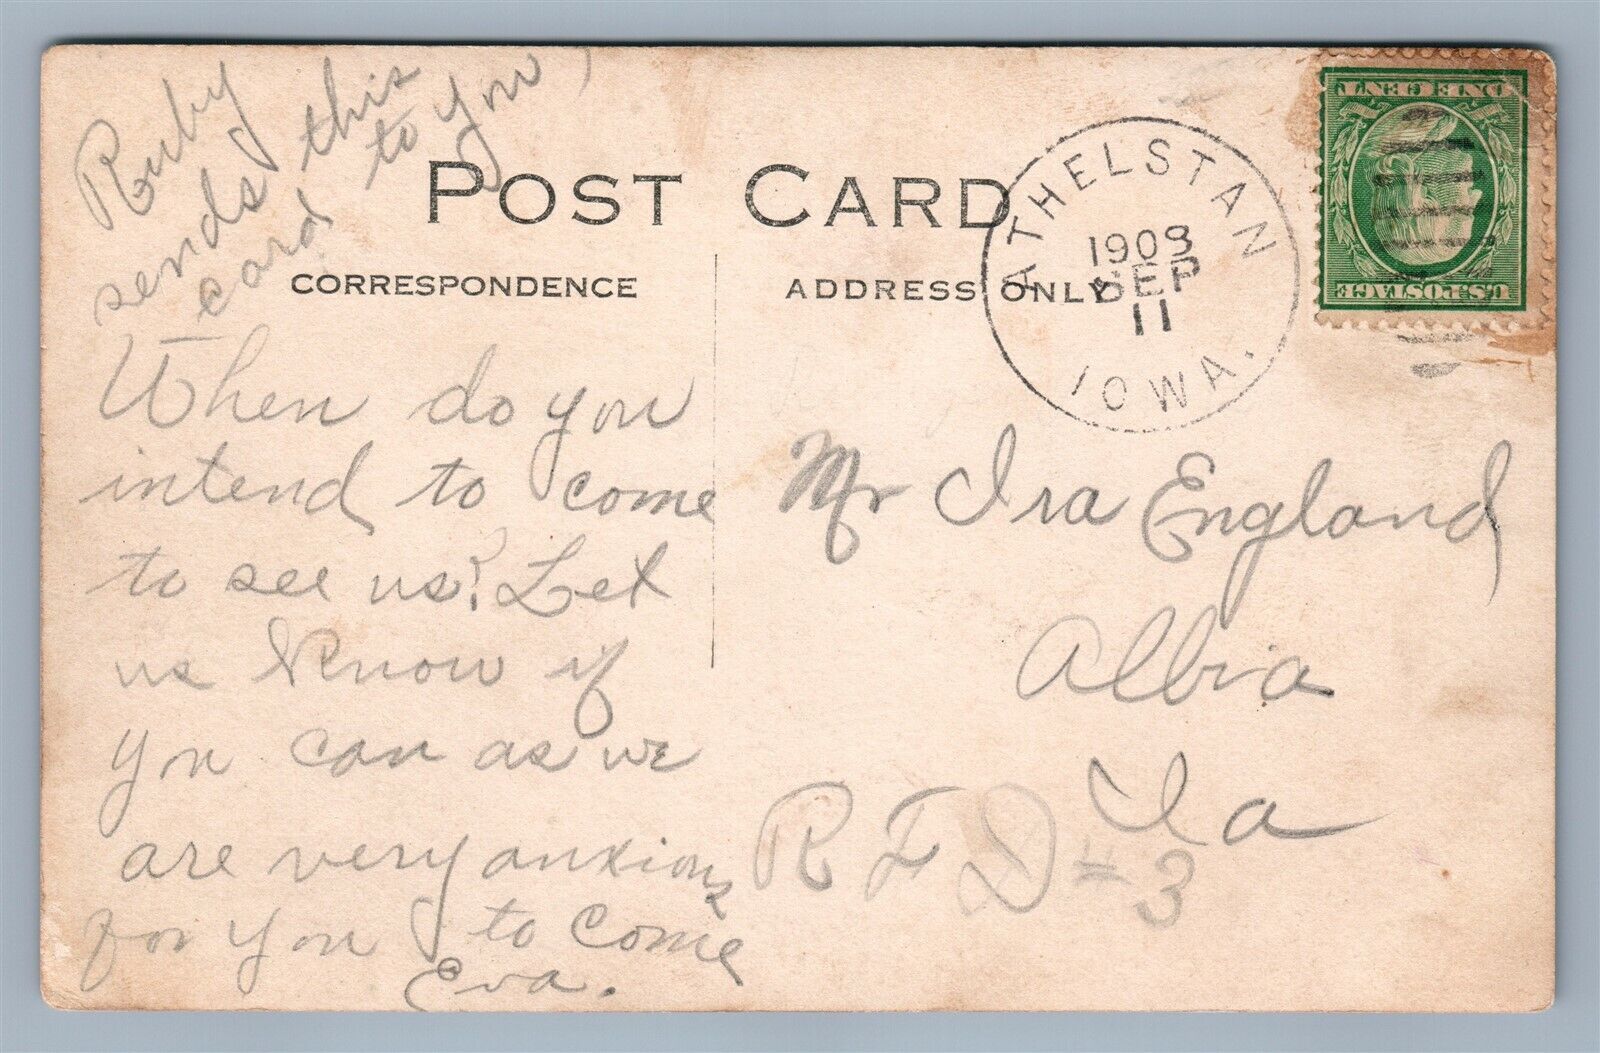 Ruby
sends this
card to you
POST CARD
CORRESPONDENCE
ADDRESS ONLY
ATHELSTAN
SEP
11
IOWA.
ONE CENT
U.S. POSTAGE
When do you
intend to come
to see us? Let
us know if
you can as we
are very anxious
for you to come
Eva.
Mr Ira England
Albia
Ia
R F D # 3